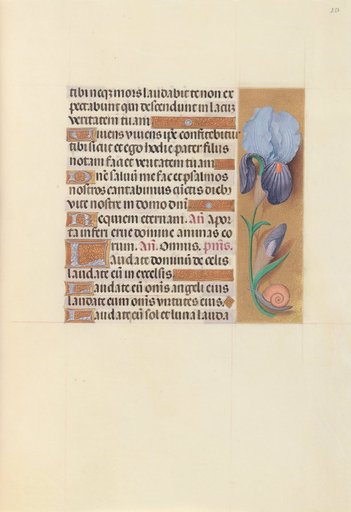 tibi neq; mors laudabit te non ex
pectabunt qui descendunt in lacũ
veritatem tuam
Uivens vivens ip̃e confitebitur
tibi sicut et ego hodie pater filiis
notam faciet veritatem tuam
Dñe salvũ me fac et psalmos
nostros cantabimus cũctis dieb;
vite nostre in domo dñi
Requiem eternam. Añ. A por
ta inferi erue domine animas eo
rum. Añ. Omnis. p̃mꝰ.
Laudate dominũ de celis
laudate eũ in excelsis
Laudate eũ om̃s angeli eius
laudate eum om̃s virtutes eius
Laudate eũ sol et luna lauda